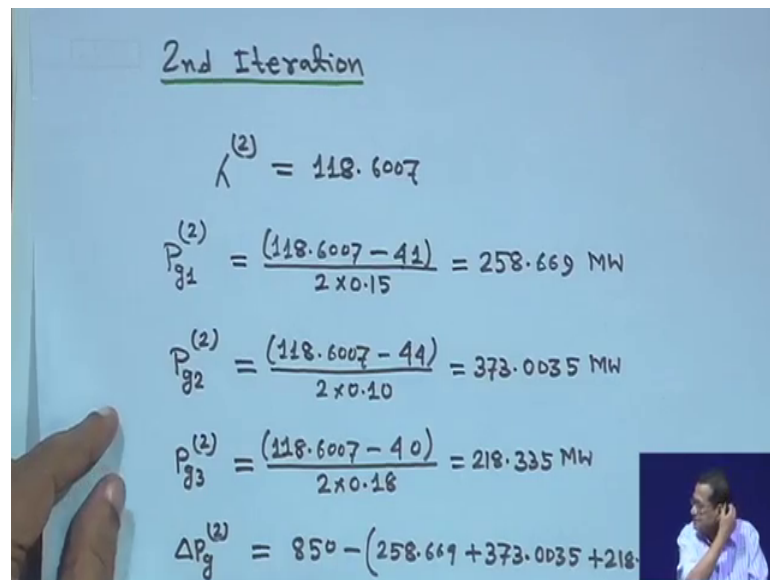 2nd Iteration
λ^(2) = 118.6007
P_g1^(2) = (118.6007 - 41) / (2 x 0.15) = 258.669 MW
P_g2^(2) = (118.6007 - 44) / (2 x 0.10) = 373.0035 MW
P_g3^(2) = (118.6007 - 40) / (2 x 0.18) = 218.335 MW
ΔP_g^(2) = 850 - (258.669 + 373.0035 + 218.